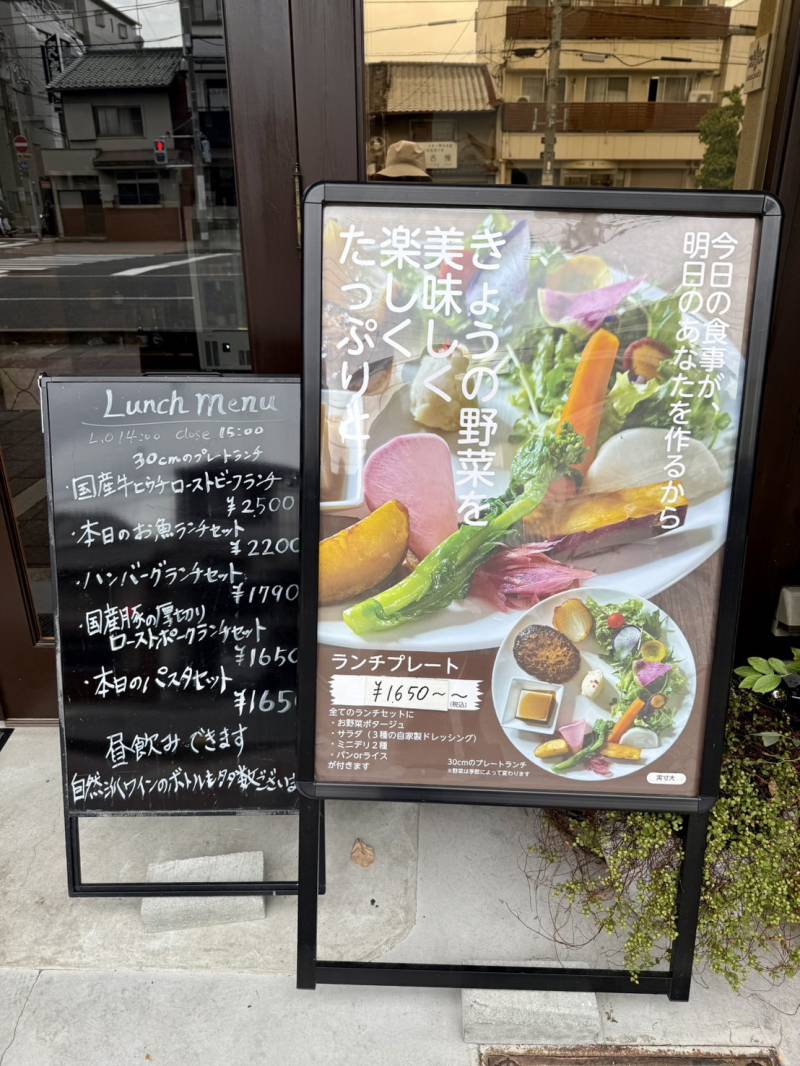 Lunch Menu
L.O 14:00 close 15:00
30cmのプレートランチ
・国産牛ヒウチローストビーフランチ
¥2,500
・本日のお魚ランチセット
¥2200
・ハンバーグランチセット
¥1790
・国産豚の厚切り
ローストポークランチセット
¥1650
・本日のパスタセット
¥165
昼飲みできます
自然派ワインのボトルも多数ござい
今日の食事が、
明日のあなたを作るから
きょうの野菜を
美味しく
楽しく
たっぷりと
ランチプレート
¥1,650〜〜
(税込)
全てのランチセットに
・お野菜ポタージュ
・サラダ（３種の自家製ドレッシング）
・ミニデリ２種
・パンorライス
が付きます
30cmのプレートランチ
※野菜は季節によって変わります
実寸大